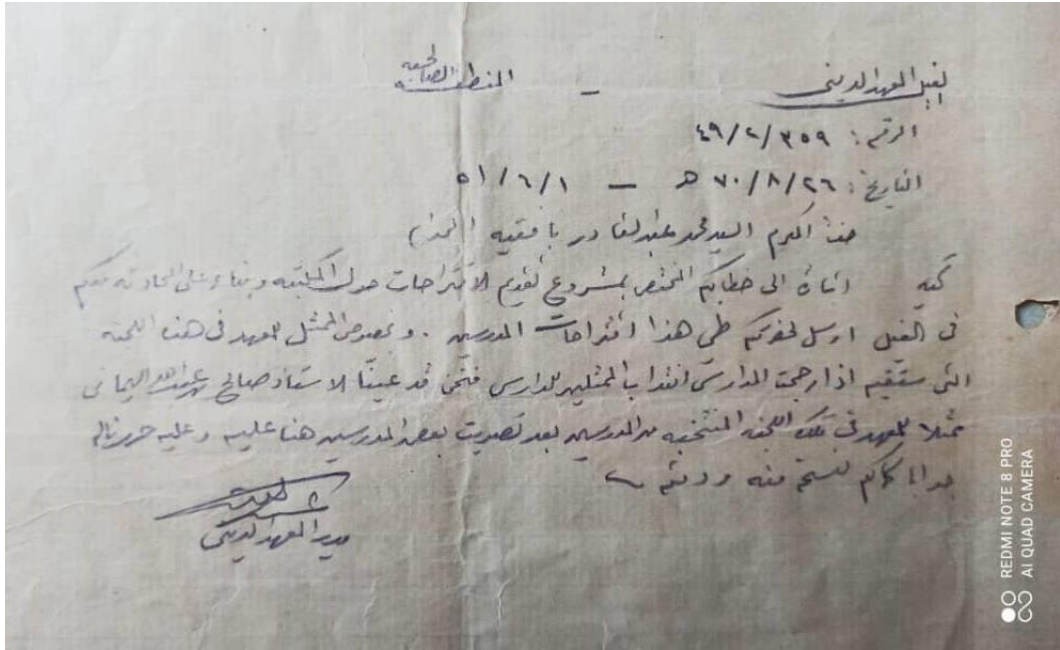 الغيل المعهد الديني — المنطقة الصالحية
الرقم: ٤٩/٢/٣٥٩
التاريخ: ٧٠/٨/٢٦ هـ — ٥١/٦/١
المكرم السيد محمد عبدالقادر بافقيه
تحيه اشارة الى خطابكم المختص بمشروع تقديم الاقتراحات حول المكتبه وبناء على المحادثه معكم
في الغيل ارسل لحضرتكم طى هذا اقتراحات المدرسين. وبخصوص الممثل للمعهد في هذه اللجنه
التى ستقيم اذا رجحت المدارس انتداب الممثلين للمدارس فنحن قد عينا الاستاذ صالح عبدالله اليماني
ممثلا للمعهد في تلك اللجنه المنتخبه من المدرسين بعد تصويت بعض المدرسين هنا عليه وعليه حرر
ودمتم
مدير المعهد الديني
REDMI NOTE 8 PRO
AI QUAD CAMERA